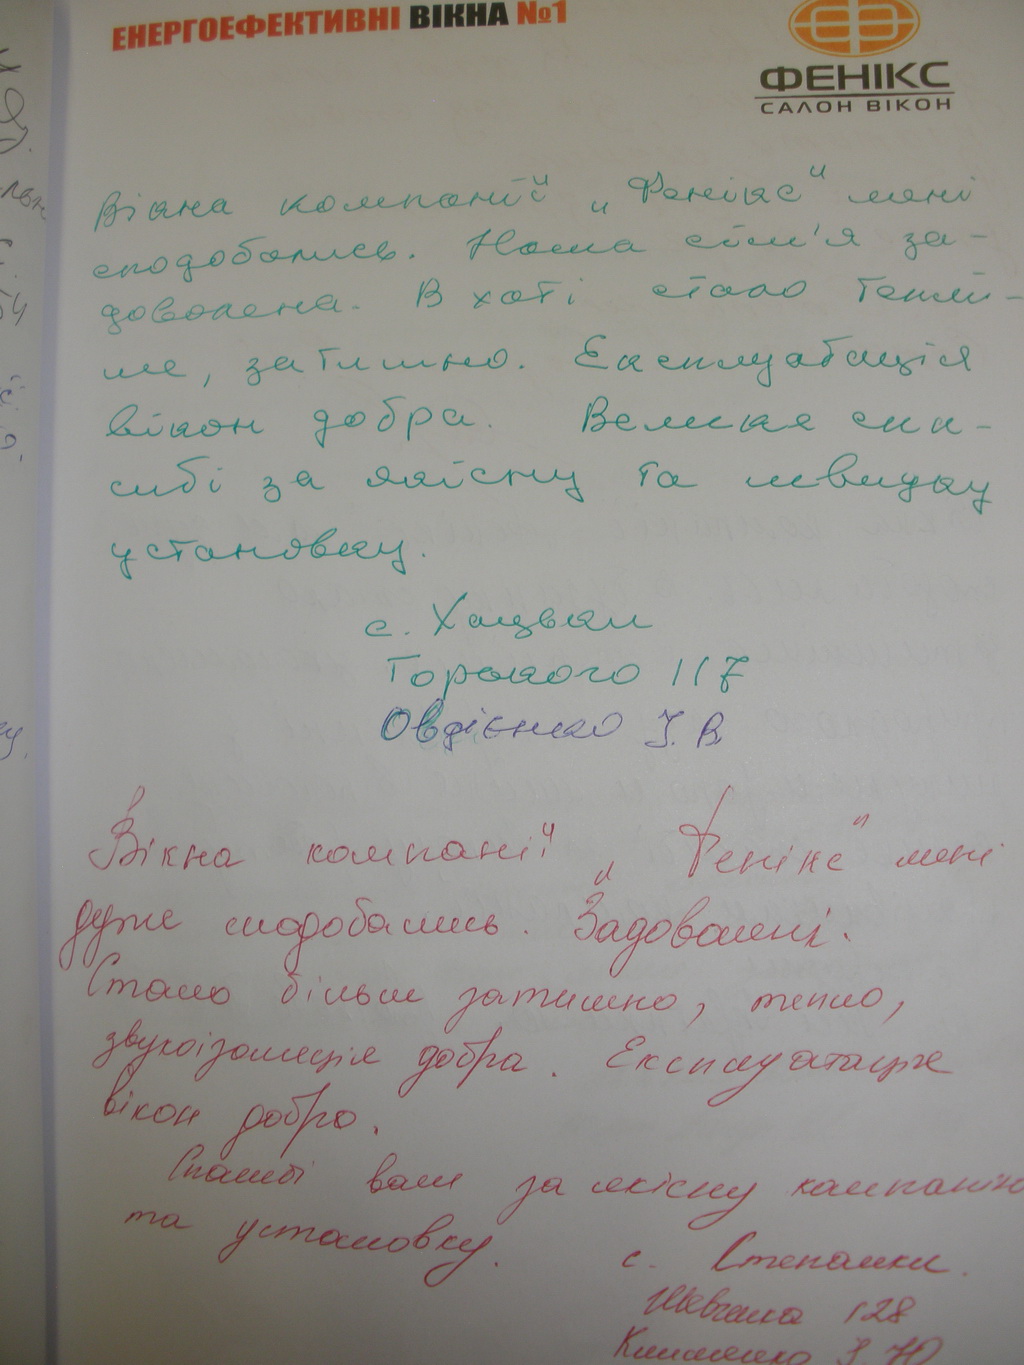 ЕНЕРГОЕФЕКТИВНІ ВІКНА №1
ФЕНІКС
САЛОН ВІКОН
Вікна компанії „Фенікс" мені
сподобались. Наша сім'я за-
доволена. В хаті стало теплі-
ше, затишно. Експлуатація
вікон добра. Велике спа-
сибі за якісну та швидку
установку.
с. Хацьки
Горького 117
Овдієнко І. В.
Вікна компанії „Фенікс" мені
дуже сподобались. Задоволені.
Стало більш затишно, тепло,
звукоізоляція добра. Експлуатація
вікон добра.
Спасибі вам за якісну компанію
та установку.
с. Степанки.
Шевченка 128